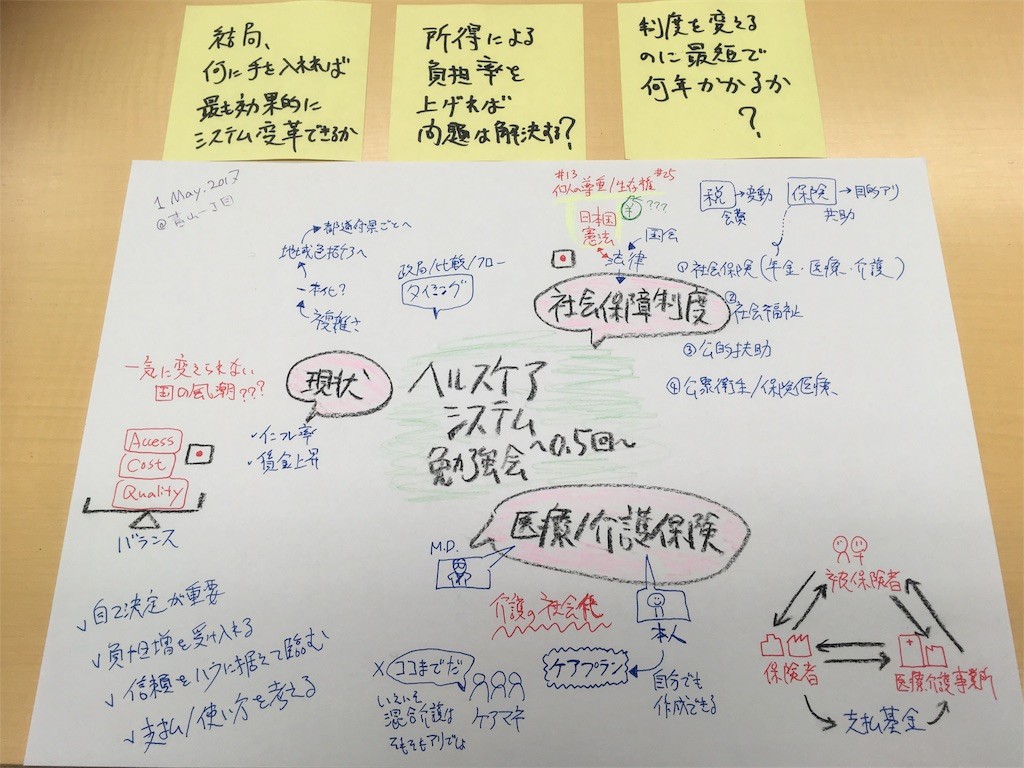 結局、
何に手を入れれば
最も効果的に
システム変革できるか
所得による
負担率を
上げれば
問題は解決する?
制度を変える
のに最短で
何年かかるか
?
1 May. 2017
@青山一丁目
→都道府県ごとへ
地域包括ケアへ
一本化?
複雑さ
政局/比較/フロー
タイミング
#13 #25
個人の尊重/生存権
日本国
憲法
¥ ???
国会
法律
税 → 変動
会費
保険 → 目的アリ
共助
社会保障制度
①社会保険(年金・医療・介護)
②社会福祉
③公的扶助
④公衆衛生/保険医療
一気に変えられない
国の風潮???
現状
・インフレ率
・賃金上昇
Access
Cost
Quality
バランス
ヘルスケア
システム
勉強会
~0.5回~
医療/介護保険
M.D.
介護の社会化
本人
ケアプラン
自分でも
作成できる
× ココまでだ
いえいえ
混合介護は
そもそもアリでしょ
ケアマネ
✓自己決定が重要
✓負担増を受け入れる
✓信頼をハラに据えて臨む
✓支払/使い方を考える
被保険者
保険者
医療介護事業所
支払基金